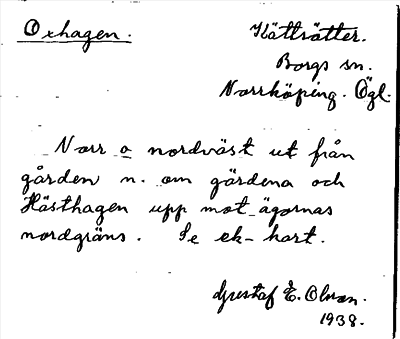 Oxhagen.
Kättsätter.
Borgs sn.
Norrköping. Ögl.
Norr o nordväst ut från
gården n. om gärdena och
Hästhagen upp mot ägornas
nordgräns. Se ek-kart.
Gustaf E. Olson.
1938.